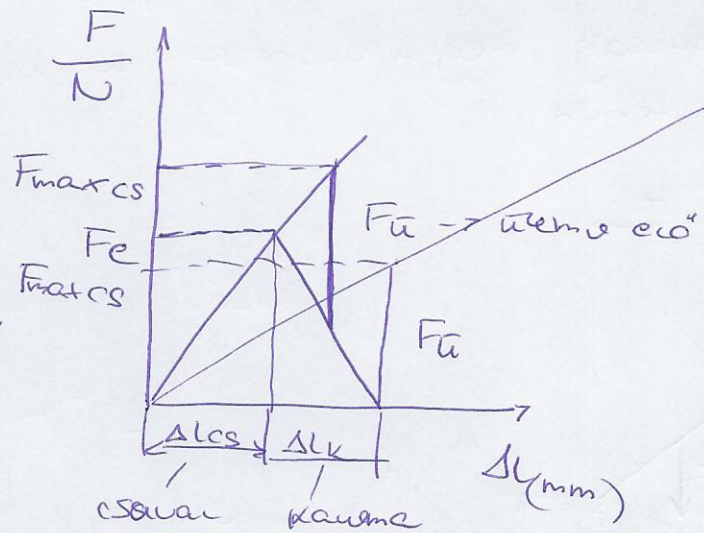 F
N
Fmax cs
Fe
Fmax cs
Fü → üzemi erő
Fü
Δlcs
Δlk
Δl (mm)
csavar
karima